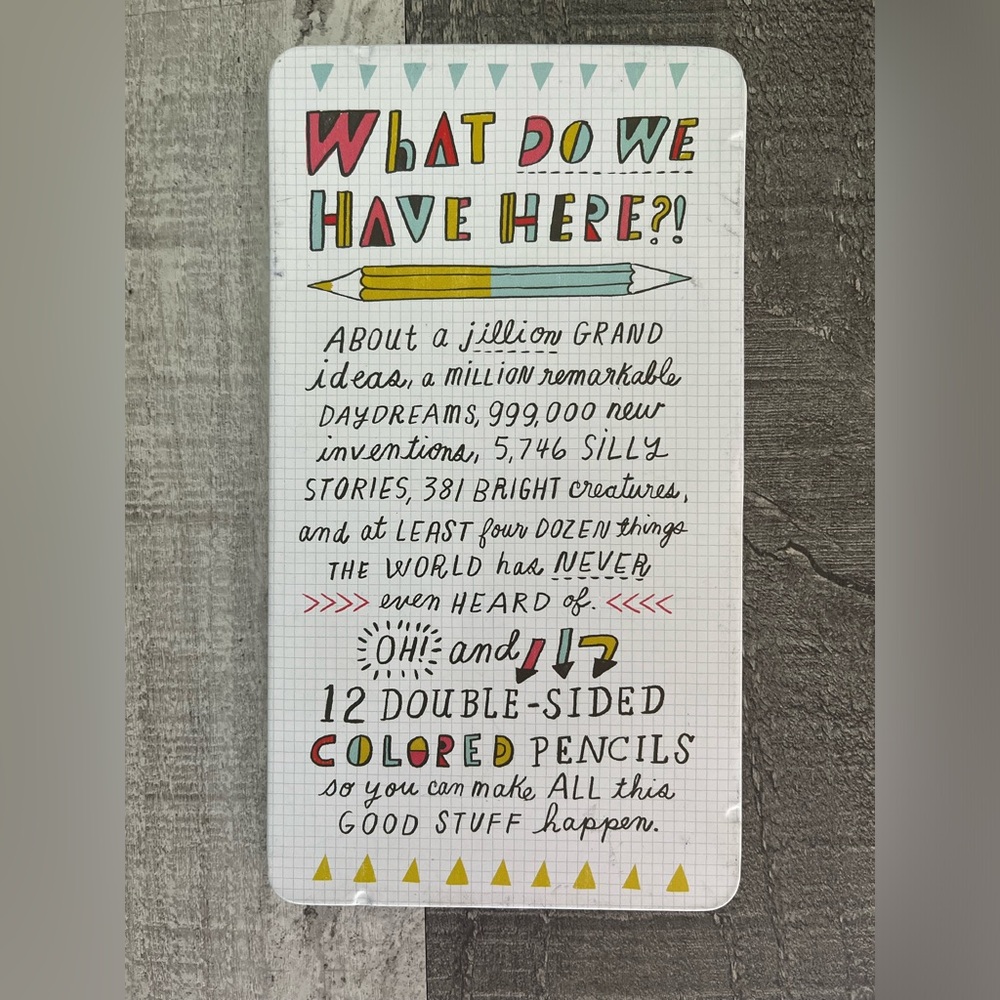 WhAT DO WE
HAVE HERE?!
ABOUt a jillion GRAND
ideas, a MILLION remarkable
DAYDREAMS, 999,000 new
inventions, 5,746 SILLY
STORIES, 381 BRIGHT creatures,
and at LEAST four DOZEN things
THE WORLD has NEVER
>>>> even HEARD of. <<<<
OH! and
12 DOUBLE-SIDED
COLORED PENCILS
so you can make ALL this
GOOD STUFF happen.